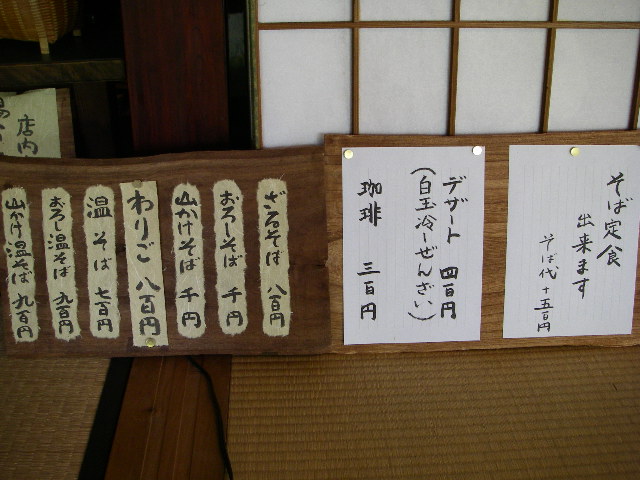 そば定食
出来ます
そば代+五百円
デザート 四百円
(白玉冷しぜんざい)
珈琲 三百円
ざるそば 八百円
おろしそば 千円
山かけそば 千円
わりご 八百円
温そば 七百円
おろし温そば 九百円
山かけ温そば 九百円
店内